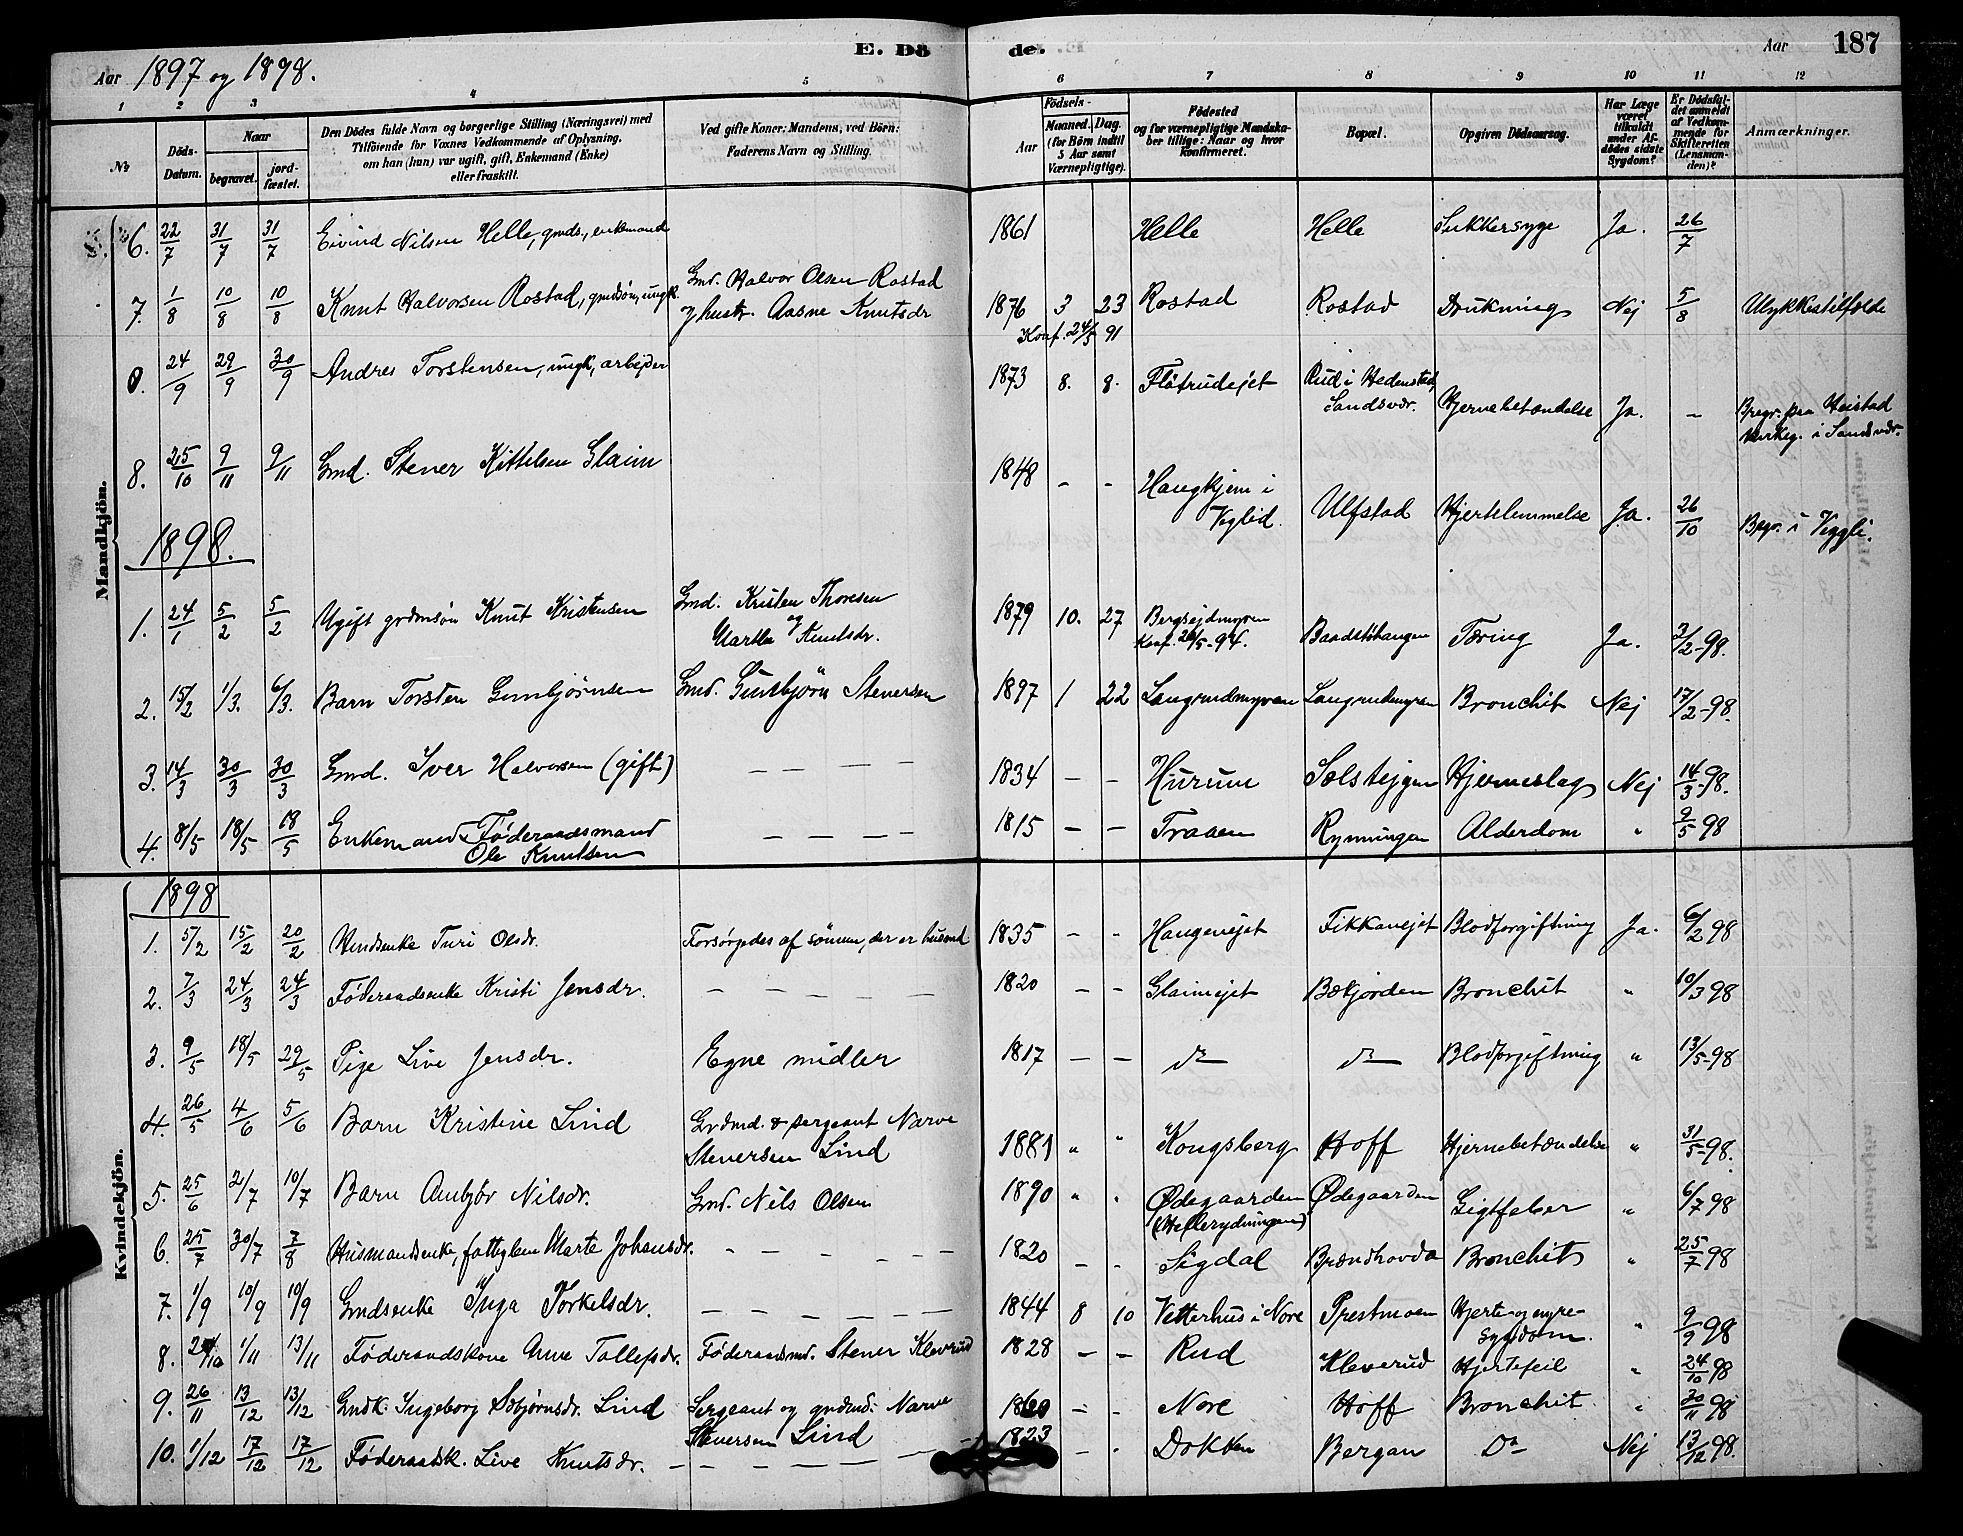 E. Dö de.
Aar 1897 og 1898.
Aar 187
1 2 3 4 5 6 7 8 9 10 11 12
No
Döds-Datum.
Naar
begravet.
jord-fæstet.
Den Dödes fulde Navn og borgerlige Stilling (Næringsvei) med
Tilföiende for Voxnes Vedkommende af Oplysning,
om han (hun) var ugift, gift, Enkemand (Enke)
eller fraskilt.
Ved gifte Koner: Mandens, ved Börn:
Faderens Navn og Stilling.
Födsels-
Aar
Maaned. Dag.
(for Börn indtil
5 Aar samt
Værnepligtige).
Födested
og for værnepligtige Mandska-
ber tillige: Naar og hvor
konfirmeret.
Bopæl.
Opgiven Dödsaarsag.
Har Læge
været
tilkaldt
under Af-
dödes sidste
Sygdom?
Er Dödsfal-
det anmeldt
af Vedkom-
mende for
Skifteretten
(Lensman-
den)?
Anmærkninger.
Mandkjön.
6. 22/7 31/7 31/7 Eivind Nilsen Helle, gmds., enkemand 1861 Helle Helle Sukkersyge Ja. 26/7
7. 1/8 10/8 10/8 Knut Halvorsen Rostad, gmdsön, ungk. Gmd. Halvor Olsen Rostad
og hustr. Aasne Knutsdr 1876 3 23 Rostad Rostad Drukning Nej 5/8 Ulykkestilfælde
Konf. 24/5 91
0. 24/9 29/9 30/9 Andres Torstensen, ungk, arbejder 1873 8. 8. Flåtrudejet Rud i Hedenstad,
Sandsvær. Hjernebetændelse Ja. - Begr. paa Heistad
kirkeg. i Sandsvær.
8. 25/10 9/11 9/11 Gmd. Stener Kittelsen Glaim 1848 - - Haugkjem i
Veglid. Ulfstad Hjertelammelse Ja. 26/10 Begr. i Veggli.
1898.
1. 24/1 5/2 5/2 Ugift grdmsön Knut Kristensen Gmd. Kristen Thoresen
og Martha Knutsdr. 1879 10. 27 Bergsejdmyren
Konf. 26/5-94. Baadstøhaugen Tæring Ja. 3/2-98.
2. 15/2 1/3. 6/3. Barn Torsten Gunbjørnsen Gmd. Gunbjörn Stenersen 1897 1 22 Langrudmyren Langrudmyren Bronchit Nej 17/2-98.
3. 14/3 30/3 30/3 Gmd. Iver Halvorsen (gift) - - - - 1834 - - Hurum Solstejgen Hjerneslag Nej 14/3-98.
4. 8/5 18/5 18/5 Enkemand - Föderaadsmand
Ole Knutsen - - - - 1815 - - Traaen Rynningen Alderdom " 9/5 98
Kvindekjön.
1898
1. 5/2 15/2 20/2 Hmdsenke Turi Olsdr. Forsörgedes af sönnen, der er husmd 1835 - - Haugenejet Fikkanejet Blodforgiftning Ja. 6/2 98
2. 7/3 24/3 24/3 Föderaadsenke Kristi Jensdr. - - - - - 1820 - - Glaimejet Bækjorden Bronchit " 10/3 98
3. 9/5 18/5 29/5 Pige Live Jensdr. Egne midler 1817 - - do do Blodforgiftning " 13/5-98
4. 26/5 4/6 5/6 Barn Kristine Lind Grdmd. & sergeant Narve
Stenersen Lind 1881 " " Kongsberg Hoff Hjernebetændelse " 31/5-98.
5. 25/6 2/7 10/7 Barn Ambjör Nilsdr. Gmd. Nils Olsen 1890 " " Ødegaarden
(Hellerydningen) Ødegaarden Gigtfeber " 6/7 98
6. 25/7 30/7 7/8 Husmandsenke, fattiglem Marte Johansdr. - - - - - 1820 - - Sigdal Brændhovda Bronchit " 25/7 98
7. 1/9 10/9 10/9 Gmdsenke Inga Torkelsdr. - - - - - 1844 8 10 Vetterhus i Nore Prestmoen Hjerte- og nyre-
sygdom. " 9/9 98
8. 1/11 13/11 Föderaadskone Anne Tollefsdr. Föderaadsmd. Stener Kleverud 1828 - - Rud Kleverud Hjertefeil " 24/10 98
9. 26/11 13/12 13/12 Gmdk. Ingeborg Asbjørnsdr. Lind Sergeant og grdmd. Narve
Stenersen Lind - - Nore Hoff Bronchit " 30/11 98
10. 1/12 17/12 17/12 Föderaadsk. Live Knutsdr. - - - - - - 1823 - - Dokken Bergan Do Nej 13/12 98.